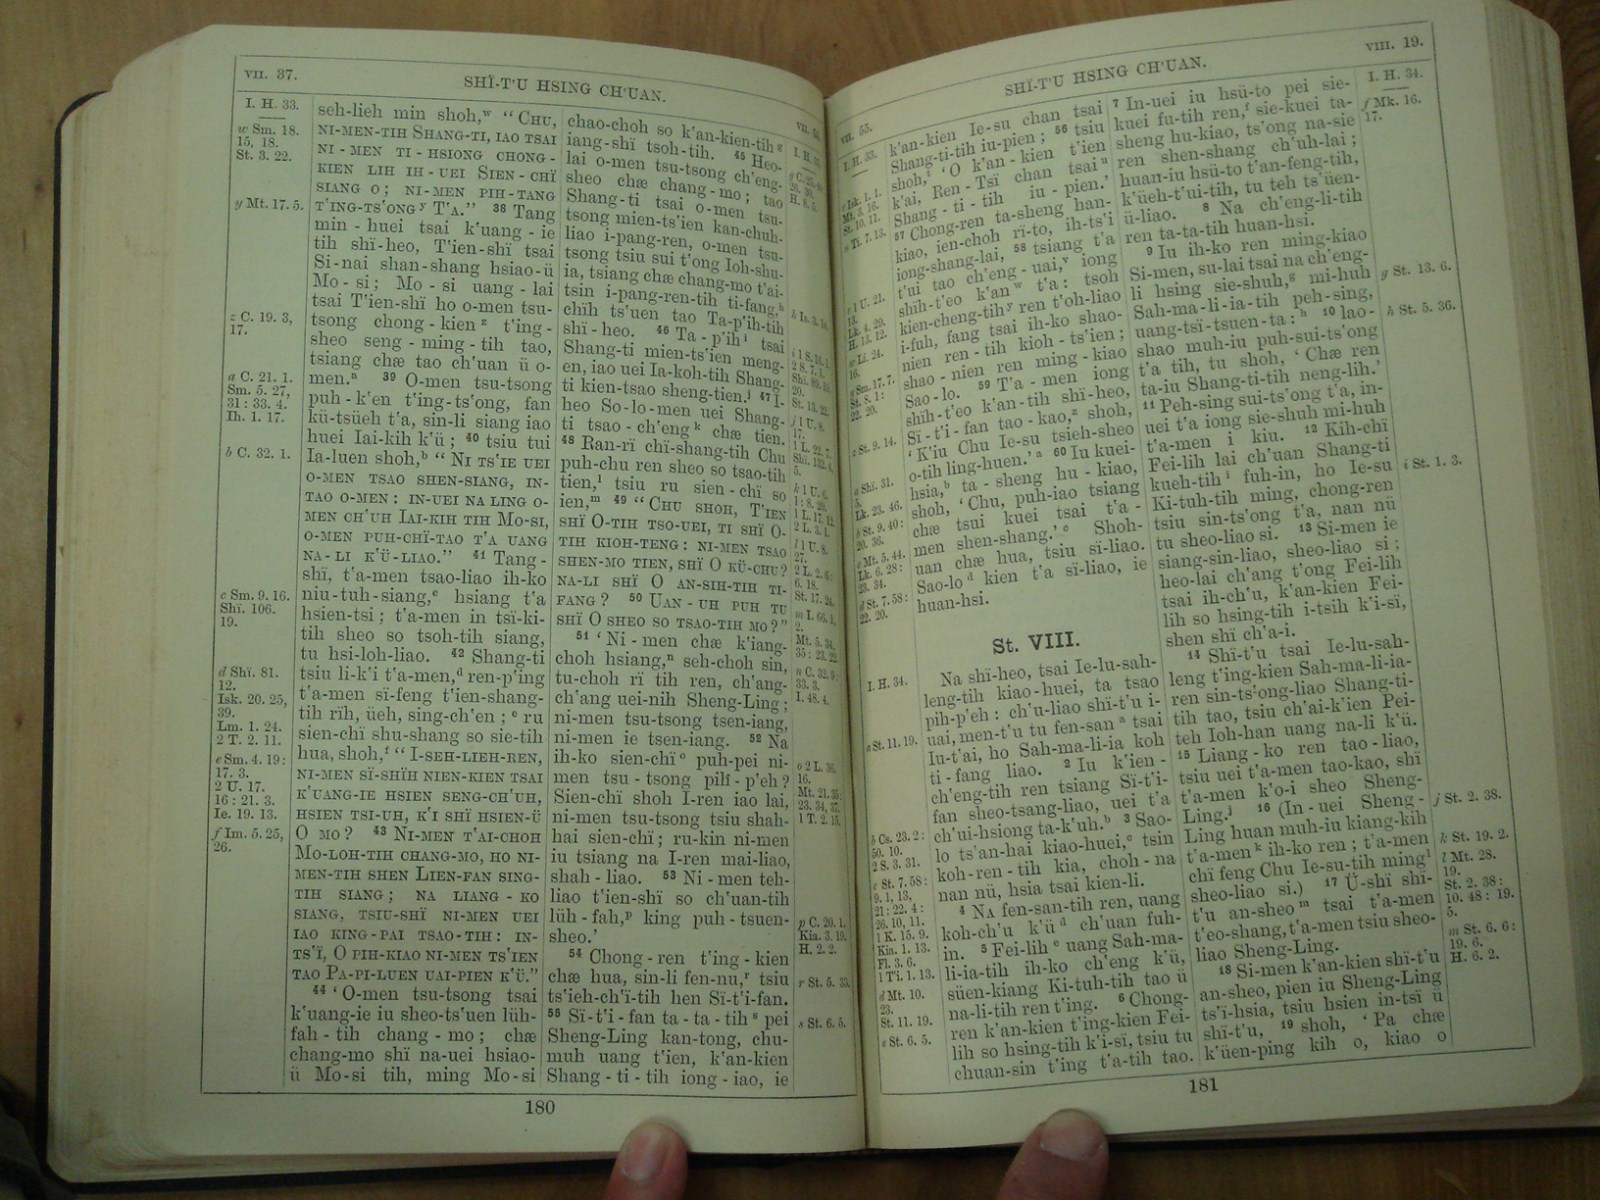 VII. 37.
SHÏ-T'U HSING CH'UAN.
I. H. 33.
w Sm. 18.
15, 18.
St. 3. 22.
y Mt. 17. 5.
z C. 19. 3,
17.
a C. 21. 1.
Sm. 5. 27,
31: 33. 4.
Ih. 1. 17.
b C. 32. 1.
c Sm. 9. 16.
Shï. 106.
19.
d Shï. 81.
12.
Isk. 20. 25,
39.
Lm. 1. 24.
2 T. 2. 11.
e Sm. 4. 19:
17. 3.
2 U. 17.
16: 21. 3.
Ie. 19. 13.
f Im. 5. 25,
26.
seh-lieh min shoh,ʷ “ Chu,
ni-men-tih Shang-ti, iao tsai
ni - men ti - hsiong chong-
kien lih ih - uei Sien - chï
siang o; ni-men pih-tang
t'ing-ts'ongʸ T'a.” ³⁸ Tang
min - huei tsai k'uang - ie
tih shï-heo, T'ien-shï tsai
Si-nai shan-shang hsiao-ü
Mo - si; Mo - si uang - lai
tsai T'ien-shï ho o-men tsu-
tsong chong-kienᶻ t'ing-
sheo seng - ming - tih tao,
tsiang chæ tao ch'uan ü o-
men.ᵃ ³⁹ O-men tsu-tsong
puh-k'en t'ing-ts'ong, fan
kü-tsüeh t'a, sin-li siang iao
huei Iai-kih k'ü; ⁴⁰ tsiu tui
Ia-luen shoh,ᵇ “ Ni ts'ie uei
o-men tsao shen-siang, in-
tao o-men: in-uei na ling o-
men ch'uh Iai-kih tih Mo-si,
o-men puh-chï-tao t'a uang
na-li k'ü-liao.” ⁴¹ Tang-
shï, t'a-men tsao-liao ih-ko
niu-tuh-siang,ᶜ hsiang t'a
hsien-tsi; t'a-men in tsï-ki-
tih sheo so tsoh-tih siang,
tu hsi-loh-liao. ⁴² Shang-ti
tsiu li-k'i t'a-men,ᵈ ren-p'ing
t'a-men sï-feng t'ien-shang-
tih rïh, üeh, sing-ch'en; ᵉ ru
sien-chï shu-shang so sie-tih
hua, shoh,ᶠ “ I-seh-lieh-ren,
ni-men sï-shïh nien-kien tsai
k'uang-ie hsien seng-ch'uh,
hsien tsi-uh, k'i shï hsien-ü
O mo? ⁴³ Ni-men t'ai-choh
Mo-loh-tih chang-mo, ho ni-
men-tih shen Lien-fan sing-
tih siang; na liang - ko
siang, tsiu-shï ni-men uei
iao king-pai tsao-tih: in-
ts'ï, O pih-kiao ni-men ts'ien
tao Pa-pi-luen uai-pien k'ü.”
⁴⁴ ‘ O-men tsu-tsong tsai
k'uang-ie iu sheo-ts'uen lüh-
fah - tih chang - mo; chæ
chang-mo shï na-uei hsiao-
ü Mo-si tih, ming Mo-si
chao-choh so k'an-kien-tihᵍ
iang-shï tsoh-tih. ⁴⁵ Heo-
lai o-men tsu-tsong ch'eng-
sheo chæ chang-mo; tao
Shang-ti tsai o-men tsu-
tsong mien-ts'ien kan-chuh-
liao i-pang-ren, o-men tsu-
tsong tsiu sui t'ong Ioh-shu-
ia, tsiang chæ chang-mo t'ai-
tsin i-pang-ren-tih ti-fang,ʰ
chïh ts'uen tao Ta-p'ih-tih
shï - heo. ⁴⁶ Ta - p'ihⁱ tsai
Shang-ti mien-ts'ien meng-
en, iao uei Ia-koh-tih Shang-
ti kien-tsao sheng-tien.ʲ ⁴⁷ I-
heo So-lo-men uei Shang-
ti tsao - ch'engᵏ chæ tien.
⁴⁸ Ran-rï chï-shang-tih Chu
puh-chu ren sheo so tsao-tih
tien,ˡ tsiu ru sien-chï so
ien,ᵐ ⁴⁹ “ Chu shoh, T'ien
shï O-tih tso-uei, ti shï O-
tih kioh-teng: ni-men tsao
shen-mo tien, shï O kü-chu?
na-li shï O an-sih-tih ti-
fang? ⁵⁰ Uan-uh puh tu
shï O sheo so tsao-tih mo?”
⁵¹ ‘ Ni - men chæ k'iang-
choh hsiang,ⁿ seh-choh sin,
tu-choh rï tih ren, ch'ang-
ch'ang uei-nih Sheng-Ling;
ni-men tsu-tsong tsen-iang,
ni-men ie tsen-iang. ⁵² Na
ih-ko sien-chïᵒ puh-pei ni-
men tsu - tsong pih - p'eh?
Sien-chï shoh I-ren iao lai,
ni-men tsu-tsong tsiu shah-
hai sien-chï; ru-kin ni-men
iu tsiang na I-ren mai-liao,
shah - liao. ⁵³ Ni - men teh-
liao t'ien-shï so ch'uan-tih
lüh - fah,ᵖ king puh - tsuen-
sheo.’
⁵⁴ Chong - ren t'ing - kien
chæ hua, sin-li fen-nu,ʳ tsiu
ts'ieh-ch'ï-tih hen Sï-t'i-fan.
⁵⁵ Sï-t'i-fan ta-ta-tihˢ pei
Sheng-Ling kan-tong, chu-
muh uang t'ien, k'an-kien
Shang - ti - tih iong - iao, ie
n C. 32. 9:
33. 3.
I. 48. 4.
p C. 20. 1.
Kia. 3. 19.
H. 2. 2.
r St. 5. 33.
s St. 6. 5.
180
VII. 55.
SHÏ-T'U HSING CH'UAN.
VIII. 19.
I. H. 33.
a Shï. 31.
5.
Lk. 23. 46.
b St. 9. 40:
20. 36.
c Mt. 5. 44.
Lk. 6. 28:
23. 34.
d St. 7. 58:
22. 20.
I. H. 34.
a St. 11. 19.
b Cs. 23. 2:
50. 10.
2 S. 3. 31.
c St. 7. 58:
9. 1, 13,
21: 22. 4:
26. 10, 11.
1 K. 15. 9.
Kia. 1. 13.
Fl. 3. 6.
1 T'i. 1. 13.
d Mt. 10.
23.
St. 11. 19.
e St. 6. 5.
k'an-kien Ie-su chan tsai
Shang-ti-tih iu-pien; ⁵⁶ tsiu
shoh,ᵗ ‘ O k'an - kien t'ien
k'ai, Ren - Tsï chan tsaiᵘ
Shang - ti - tih iu - pien.’
⁵⁷ Chong-ren ta-sheng han-
kiao, ien-choh rï-to, ih-ts'i
iong-shang-lai, ⁵⁸ tsiang t'a
t'ui tao ch'eng-uai,ᵛ iong
shïh-t'eo k'anʷ t'a: tsoh
kien-cheng-tihʸ ren t'oh-liao
i-fuh, fang tsai ih-ko shao-
nien ren - tih kioh - ts'ien;
shao - nien ren ming - kiao
Sao-lo. ⁵⁹ T'a - men iong
shïh-t'eo k'an-tih shï-heo,
Sï - t'i - fan tao - kao,ᶻ shoh,
‘ K'iu Chu Ie-su tsieh-sheo
o-tih ling-huen.’ᵃ ⁶⁰ Iu kuei-
hsia,ᵇ ta - sheng hu - kiao,
shoh, ‘ Chu, puh-iao tsiang
chæ tsui kuei tsai t'a -
men shen-shang.’ᶜ Shoh-
uan chæ hua, tsiu sï-liao.
Sao-loᵈ kien t'a sï-liao, ie
huan-hsi.
St. VIII.
Na shï-heo, tsai Ie-lu-sah-
leng-tih kiao-huei, ta tsao
pih-p'eh: ch'u-liao shï-t'u i-
uai, men-t'u tu fen-sanᵃ tsai
Iu-t'ai, ho Sah-ma-li-ia koh
ti - fang liao. ² Iu k'ien -
ch'eng-tih ren tsiang Sï-t'i-
fan sheo-tsang-liao, uei t'a
ch'ui-hsiong ta-k'uh.ᵇ ³ Sao-
lo ts'an-hai kiao-huei,ᶜ tsin
koh-ren-tih kia, choh-na
nan nü, hsia tsai kien-li.
⁴ Na fen-san-tih ren, uang
koh-ch'u k'üᵈ ch'uan fuh-
in. ⁵ Fei-lihᵉ uang Sah-ma-
li-ia-tih ih-ko ch'eng k'ü,
süen-kiang Ki-tuh-tih tao ü
na-li-tih ren t'ing. ⁶ Chong-
ren k'an-kien t'ing-kien Fei-
lih so hsing-tih k'i-sï, tsiu tu
chuan-sin t'ing t'a-tih tao.
⁷ In-uei iu hsü-to pei sie-
kuei fu-tih ren,ᶠ sie-kuei ta-
sheng hu-kiao, ts'ong na-sie
ren shen-shang ch'uh-lai;
huan-iu hsü-to t'an-feng-tih,
k'üeh-t'ui-tih, tu teh ts'üen-
ü-liao. ⁸ Na ch'eng-li-tih
ren ta-ta-tih huan-hsi.
⁹ Iu ih-ko ren ming-kiao
Si-men, su-lai tsai na ch'eng-
li hsing sie-shuh,ᵍ mi-huh
Sah-ma-li-ia-tih peh-sing,
uang-tsï-tsuen-ta: ʰ ¹⁰ lao-
shao muh-iu puh-sui-ts'ong
t'a tih, tu shoh, ‘ Chæ ren
ta-iu Shang-ti-tih neng-lih.’
¹¹ Peh-sing sui-ts'ong t'a, in-
uei t'a iong sie-shuh mi-huh
t'a-men i kiu. ¹² Kih-chï
Fei-lih lai ch'uan Shang-ti
kueh-tihⁱ fuh-in, ho Ie-su
Ki-tuh-tih ming, chong-ren
tsiu sin-ts'ong t'a, nan nü
tu sheo-liao si. ¹³ Si-men ie
siang-sin-liao, sheo-liao si;
heo-lai ch'ang t'ong Fei-lih
tsai ih-ch'u, k'an-kien Fei-
lih so hsing-tih i-tsih k'i-sï,
shen shï ch'a-i.
¹⁴ Shï-t'u tsai Ie-lu-sah-
leng t'ing-kien Sah-ma-li-ia-
ren sin-ts'ong-liao Shang-ti-
tih tao, tsiu ch'ai-k'ien Pei-
teh Ioh-han uang na-li k'ü.
¹⁵ Liang - ko ren tao - liao,
tsiu uei t'a-men tao-kao, shï
t'a-men k'o-i sheo Sheng-
Ling.ʲ ¹⁶ (In - uei Sheng -
Ling huan muh-iu kiang-kih
t'a-menᵏ ih-ko ren; t'a-men
chï feng Chu Ie-su-tih mingˡ
sheo-liao si.) ¹⁷ Ü-shï shï-
t'u an-sheoᵐ tsai t'a-men
t'eo-shang, t'a-men tsiu sheo-
liao Sheng-Ling.
¹⁸ Si-men k'an-kien shï-t'u
an-sheo, pien iu Sheng-Ling
ts'ï-hsia, tsiu hsien in-tsï ü
shï-t'u, ¹⁹ shoh, ‘ Pa chæ
k'üen-ping kih o, kiao o
I. H. 34.
f Mk. 16.
17.
g St. 13. 6.
h St. 5. 36.
i St. 1. 3.
j St. 2. 38.
k St. 19. 2.
l Mt. 28.
19.
St. 2. 38:
10. 48: 19.
5.
m St. 6. 6:
19. 6.
H. 6. 2.
181